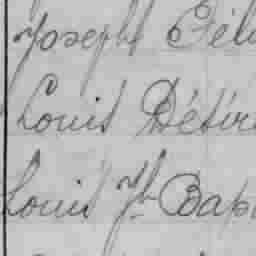 Joseph Féli
Louis Désiré
Louis Jh Bap